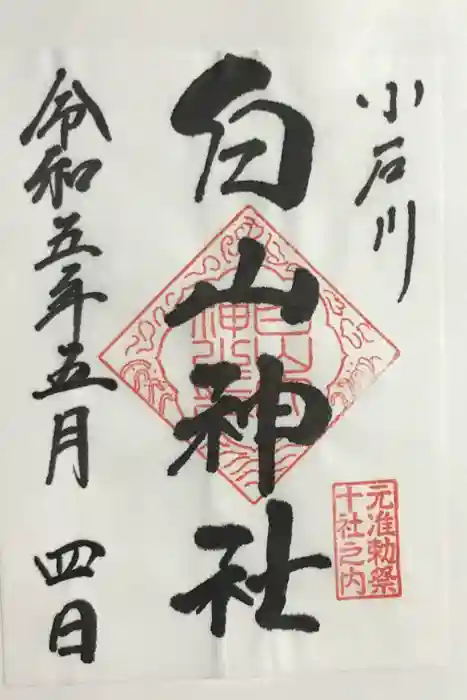 小石川
白山神社
令和五年五月四日
元准勅祭
十社之内